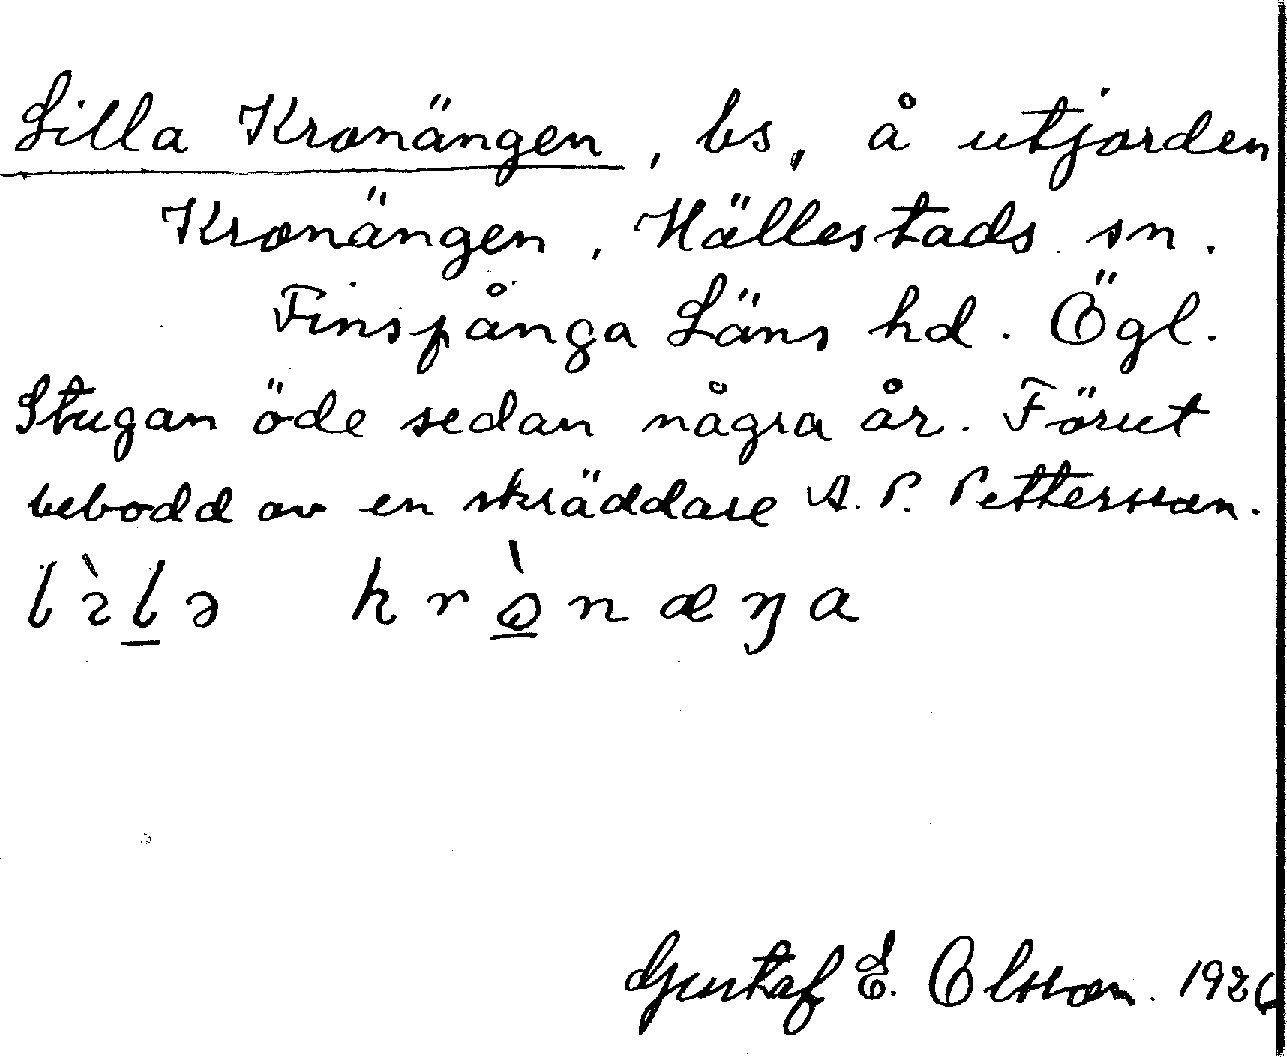 Lilla Kronängen, bs, å utjorden
Kronängen, Hällestads sn.
Finspånga Läns hd. Ögl.
Stugan öde sedan några år. Förut
bebodd av en skräddare A. P. Pettersson.
Gustaf E. Olsson. 1926